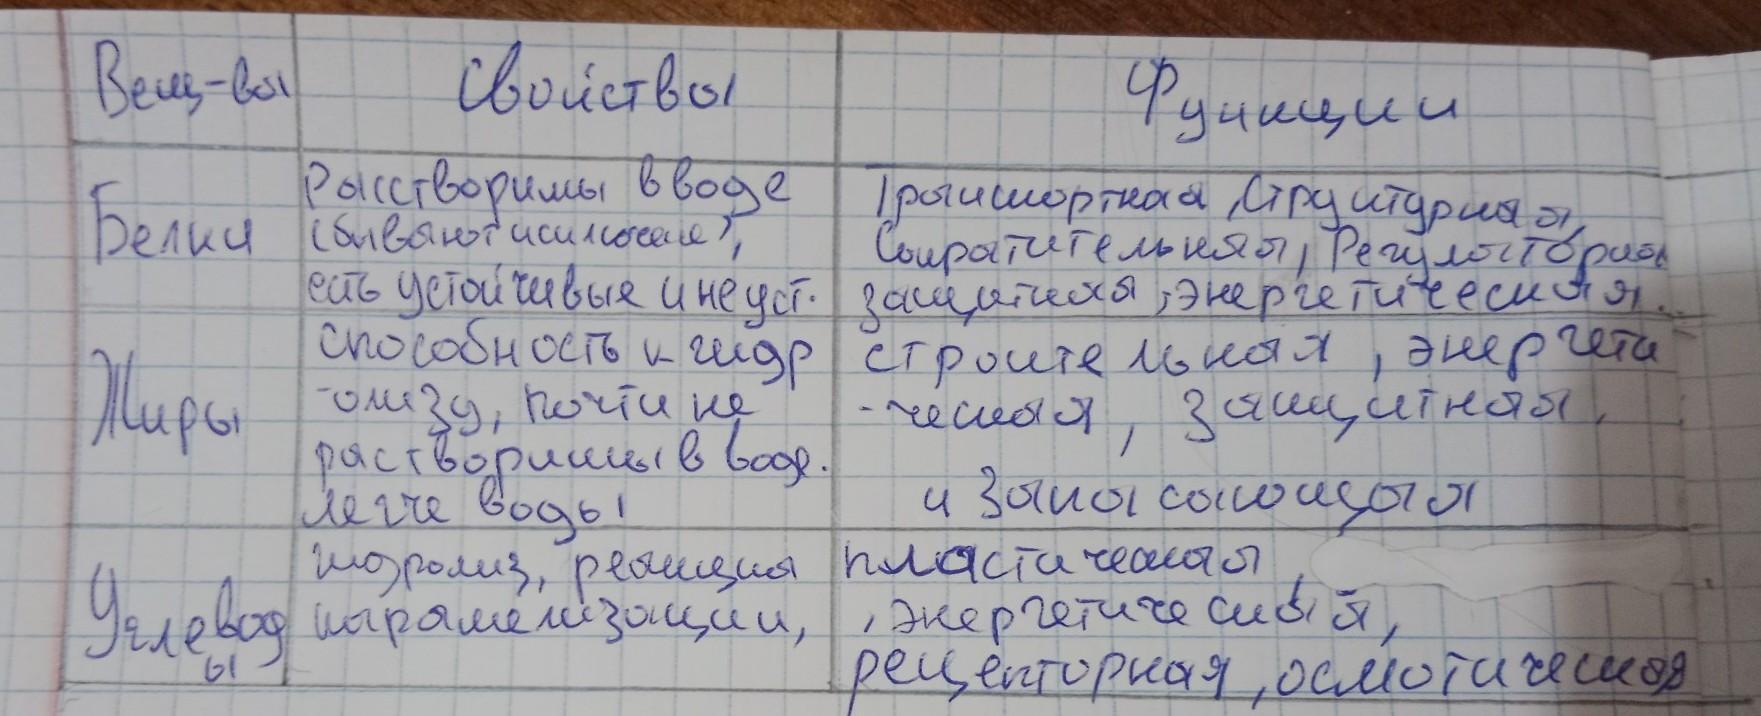 Вещ-вы Свойствы Функции
Белки
Расстворимы в воде
(бывают исключе),
есть устойчивые и неуст.
Транспортная, Структурная,
Сократительная, Регуляторная
защитная, энергетическая.
Жиры
способность к гидр
-олизу, почти не
растворимы в воде.
легче воды
строительная, энергети
-ческая, защитная,
и запасающая
Углевод
ы
гидролиз, реакция
карамелизации,
пластическая,
, энергетический,
рецепторная, осмотическая